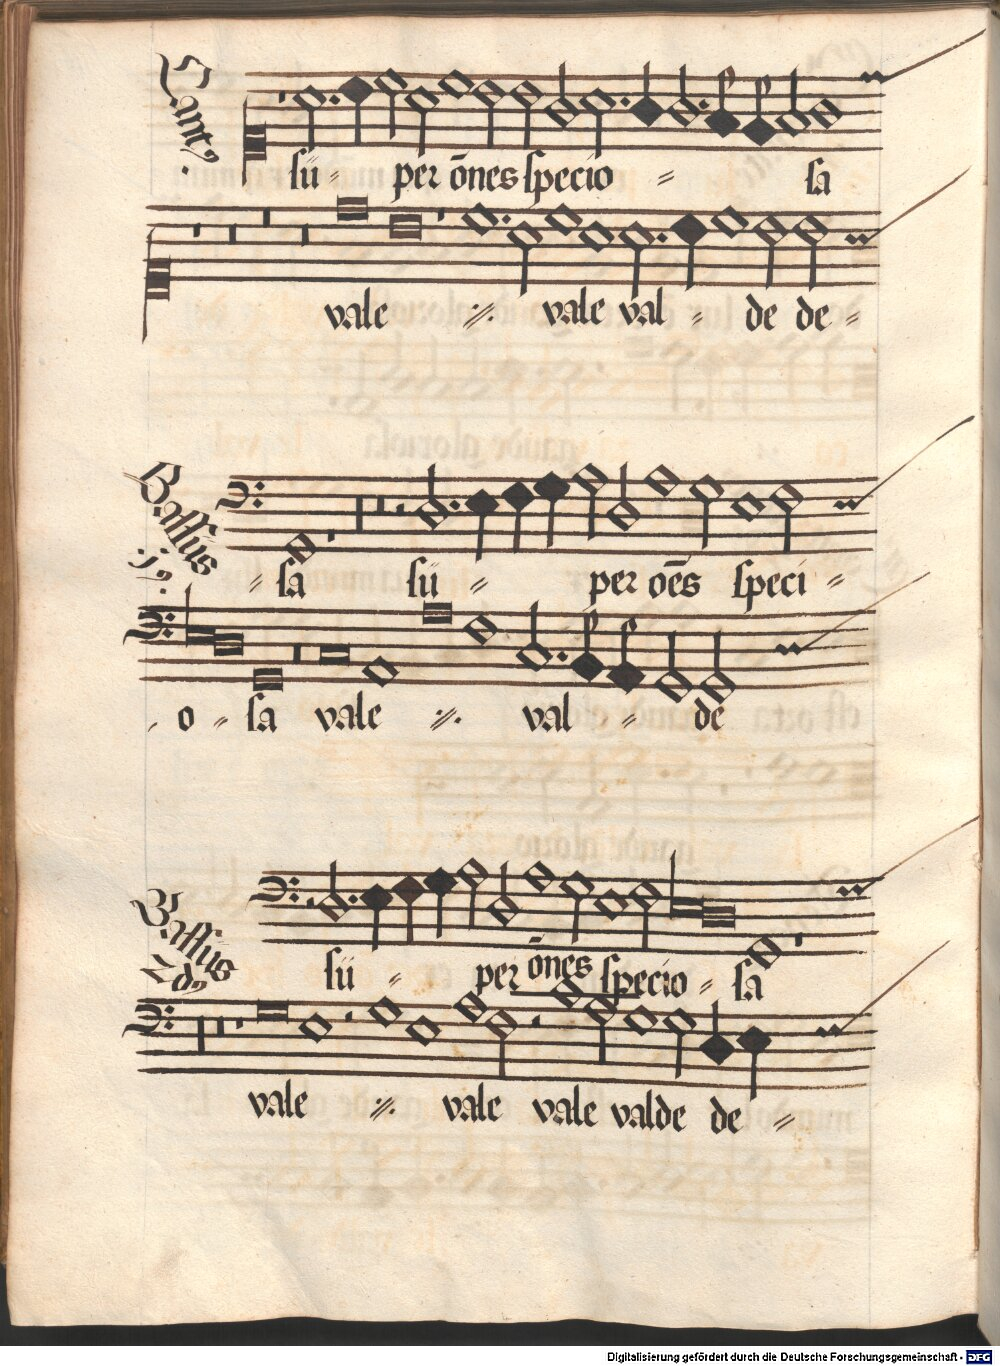 Cant9
sü - per õnes specio - sa
vale :// vale val - de de-
Bassus
19
- sa sü - per oēs speci -
- o - sa vale :// val - de
Bassus
2d9
sü - per õnes specio - sa
vale :// vale vale valde de -
Digitalisierung gefördert durch die Deutsche Forschungsgemeinschaft - DFG